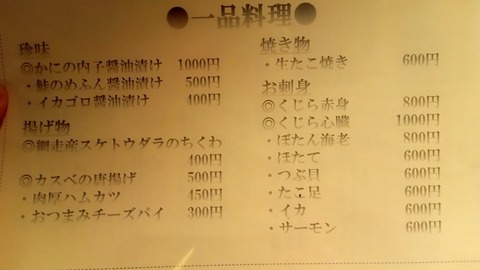 ●一品料理●
珍味
◎かにの内子醤油漬け 1000円
・鮭のめふん醤油漬け 500円
・イカゴロ醤油漬け 400円
揚げ物
◎網走産スケトウダラのちくわ
400円
◎カスベの唐揚げ 500円
・肉厚ハムカツ 450円
・おつまみチーズパイ 300円
焼き物
・生たこ焼き 600円
お刺身
◎くじら赤身 800円
◎くじら心臓 1000円
・ぼたん海老 800円
・ほたて 600円
・つぶ貝 600円
・たこ足 600円
・イカ 600円
・サーモン 600円